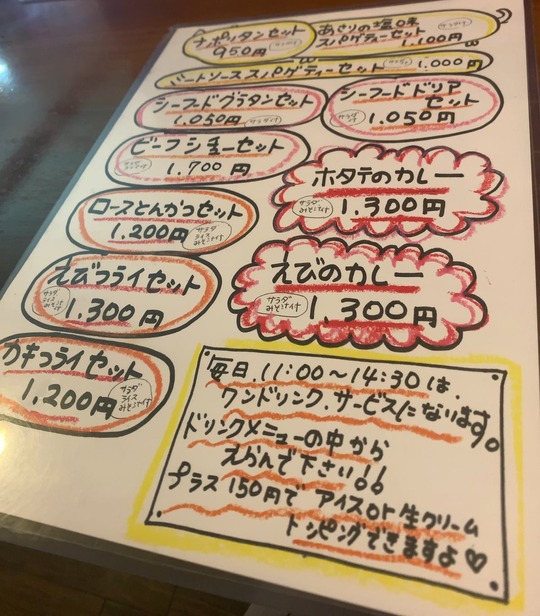 ナポリタンセット
950円 サラダ付
あさりの塩味 サラダ付
スパゲティーセット
1,100円
ミートソーススパゲティーセット 1,000円
シーフードグラタンセット
1,050円 サラダ付
シーフードドリア
セット
サラダ付 1,050円
ビーフシチューセット
1,700円
ホタテのカレー
サラダ
みそ汁付 1,300円
ロースとんかつセット
1,200円 サラダ
ライス
みそ汁付
えびのカレー
サラダ
みそ汁付 1,300円
えびフライセット
サラダ
ライス
みそ汁付 1,300円
カキフライセット
1,200円 サラダ
ライス
みそ汁付
毎日、11:00〜14:30は、
ワンドリンク、サービスになります。
ドリンクメニューの中から
えらんで下さい!!
プラス150円で アイスor生クリーム
トッピングできますよ♡